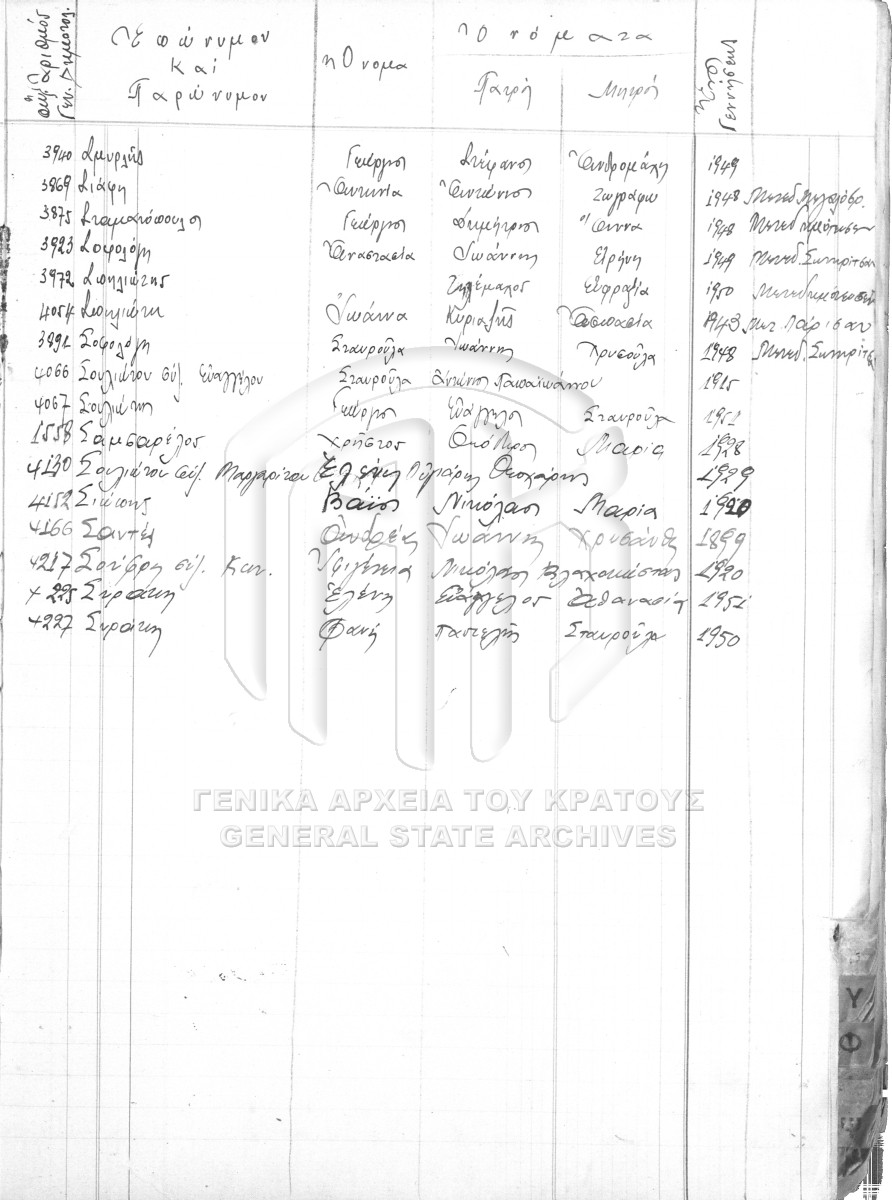 αὔξ. ἀριθμός Γεν. Δημοτολ.
Ἐπώνυμον Καί Παρώνυμον
Ὄνομα
Ὀνόματα
Πατρός
Μητρός
Ἔτος Γεννήσεως
3940 Σμυρλῆς Γεώργιος Στέφανος Ἀνδρομάχη 1949
3869 Σιάφη Ἀντωνία Ἀντώνιος Ζωγράφω 1948
3875 Σταματόπουλος Γεώργιος Δημήτριος Ἄννα 1948
3923 Σοφολόγη Ἀναστασία Ἰωάννης Εἰρήνη 1949 Σωτηρίτσαν
3972 Σπηλιώτης Τηλέμαχος Εὐφραξία 1950
4054 Σπηλιώτη Ἰωάννα Κυριαζῆς Ἀσπασία 1943 Λάρισαν
3891 Σοφολόγη Σταυροῦλα Ἰωάννης Χρυσούλα 1948
4066 Σουλιώτου σύζ. Εὐαγγέλου Σταυροῦλα Ἀντώνιος Παπαϊωάννου 1915
4067 Σουλιώτης Γεώργιος Εὐάγγελος Σταυροῦλα 1951
1558 Σαμσαρέλος Χρῆστος Μαρία 1928
4130 Σουλιώτου σύζ. Μαργαρίτου Ἑλένη Θεοχάρης 1929
4152 Σιώπης Βάϊος Νικόλαος Μαρία 1920
4166 Σαντές Ἀνδρέας Ἰωάννης Χρυσάνθη 1899
4217 Σούφρη σύζ. Κων. Ἰφιγένεια Νικόλαος 1920
4225 Συράκη Ἑλένη Εὐάγγελος Ἀθανασία 1951
4227 Συράκη Φανή Παντελῆς Σταυροῦλα 1950
ΓΕΝΙΚΑ ΑΡΧΕΙΑ ΤΟΥ ΚΡΑΤΟΥΣ
GENERAL STATE ARCHIVES
Υ
Φ